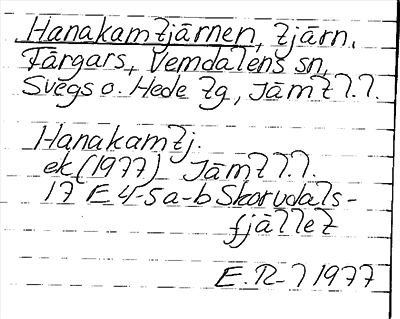 Hanakamtjärnen, tjärn,
Färgars, Vemdalens sn,
Svegs o. Hede tg, Jämtl.l.
Hanakamtj.
ek (1977) Jämtl.l.
17 E 4-5 a-b Skorvdals-
fjället
E. R-l 1977